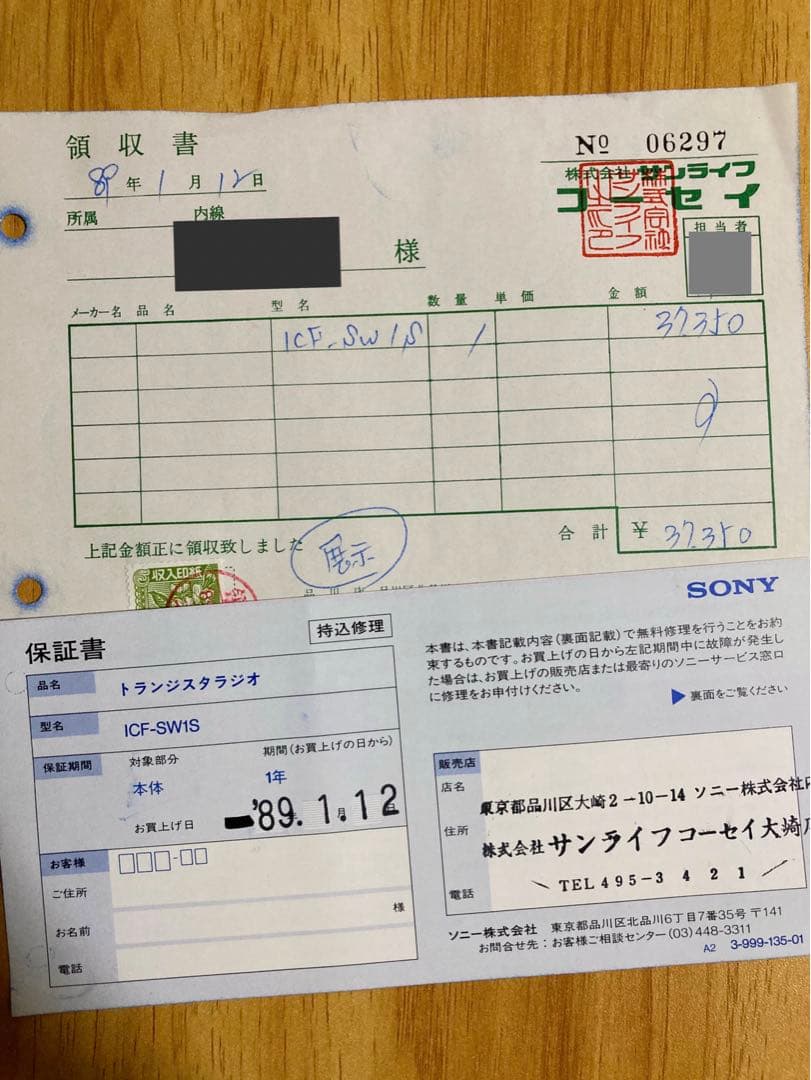 領収書
Nº 06297
89年1月12日
株式会社サンライフ
コーセイ
所属 内線
様
担当者
メーカー名 品名 型名 数量 単価 金額
ICF-SW1S 1 37.350
上記金額正に領収致しました
展示
合計 ¥37.350
収入印紙
SONY
保証書
持込修理
品名 トランジスタラジオ
型名 ICF-SW1S
保証期間 対象部分 期間(お買上げの日から)
本体 1年
お買上げ日 '89.1月12日
お客様
ご住所
お名前 様
電話
本書は、本書記載内容(裏面記載)で無料修理を行うことをお約
束するものです。お買上げの日から左記期間中に故障が発生し
た場合は、お買上げの販売店または最寄りのソニーサービス窓口
に修理をお申付けください。
▶裏面をご覧ください
販売店
店名
東京都品川区大崎2-10-14 ソニー株式会社内
住所
株式会社サンライフコーセイ大崎
電話
TEL495-3421
ソニー株式会社 東京都品川区北品川6丁目7番35号 〒141
お問合せ先:お客様ご相談センター(03)448-3311
A2 3-999-135-01